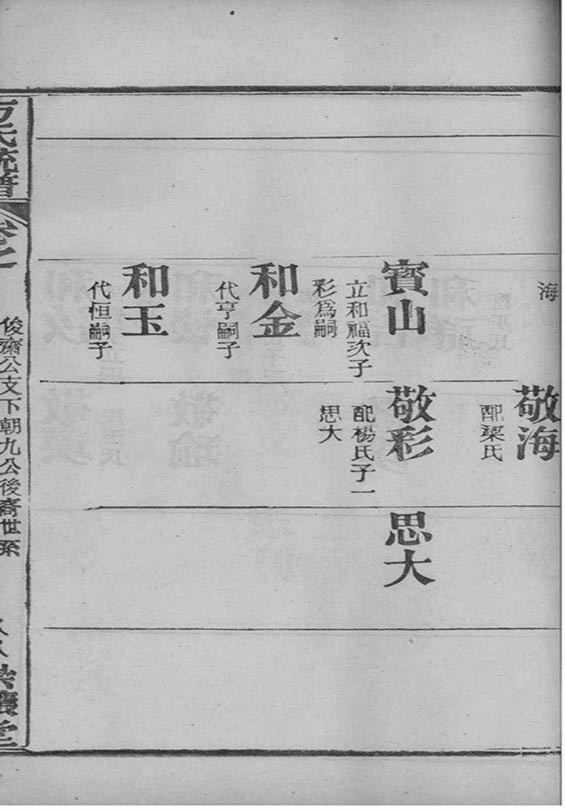 海
敬海
配梁氏
寶山
立和福次子
彩爲嗣
敬彩
配楊氏子一
思大
思大
和金
代亨嗣子
和玉
代恒嗣子
方氏統譜
卷之
俊齋公支下朝九公後裔世系